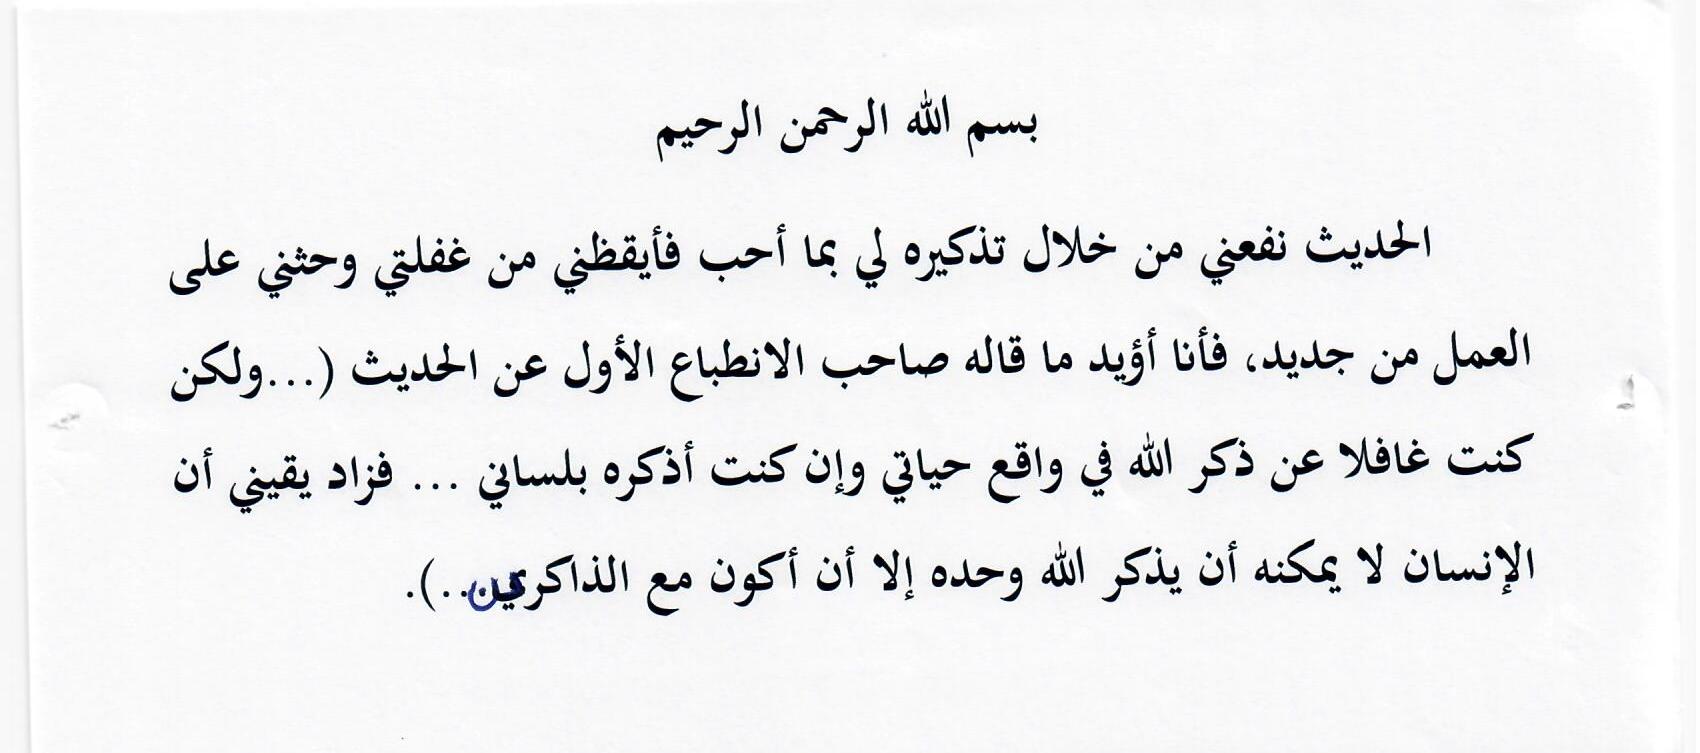 بسم الله الرحمن الرحيم
الحديث نفعني من خلال تذكيره لي بما أحب فأيقظني من غفلتي وحثني على
العمل من جديد، فأنا أؤيد ما قاله صاحب الانطباع الأول عن الحديث (...ولكن
كنت غافلا عن ذكر الله في واقع حياتي وإن كنت أذكره بلساني ... فزاد يقيني أن
الإنسان لا يمكنه أن يذكر الله وحده إلا أن أكون مع الذاكرين...).